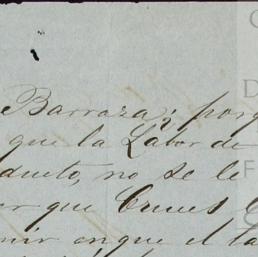 Barraza; porq
que la Labor de
ducto, no se le
or que Cruces
mir en que el ta